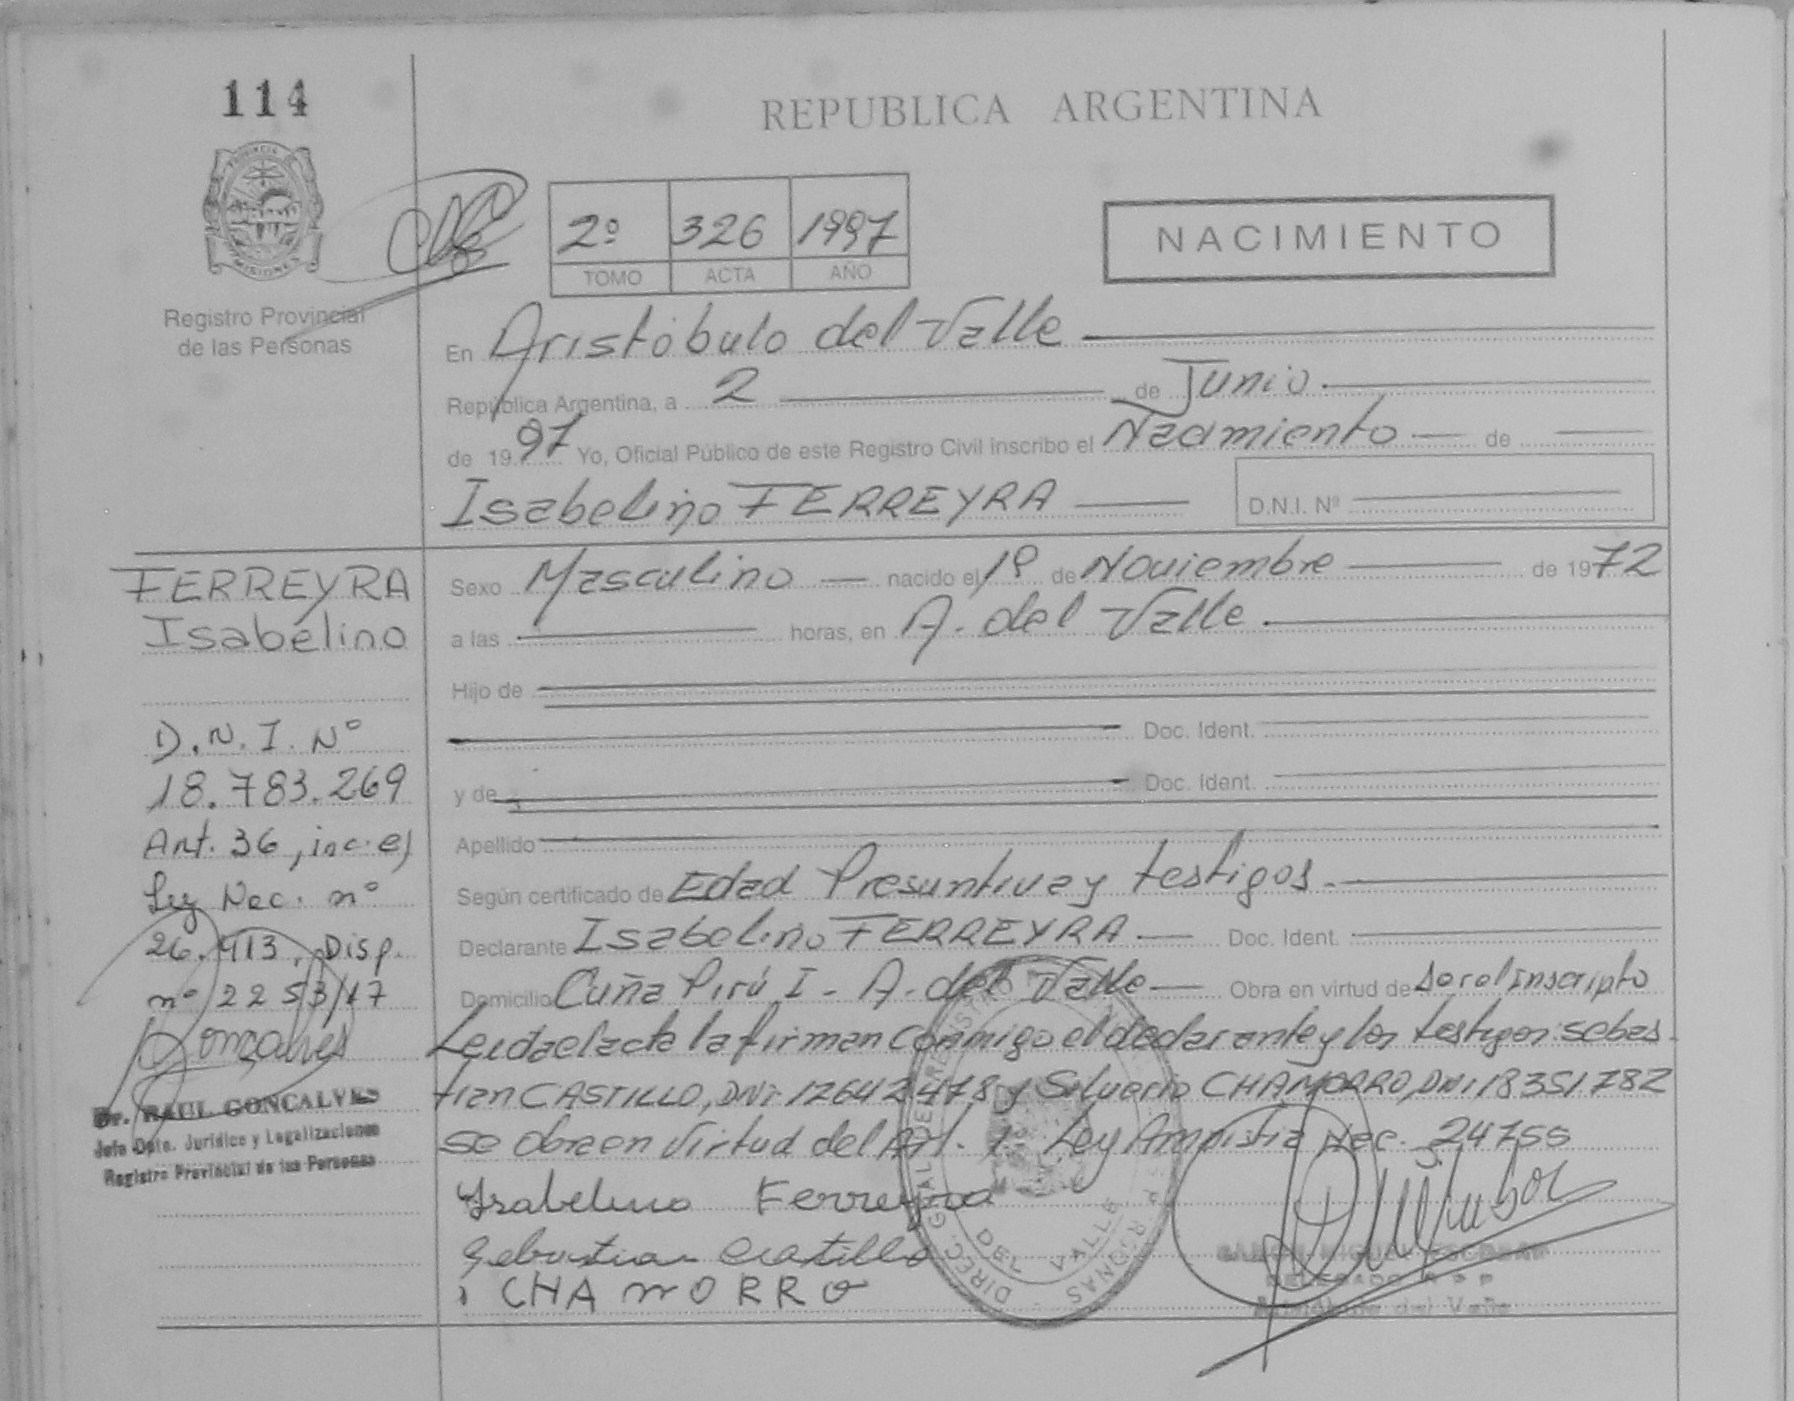 114
REPUBLICA ARGENTINA
PROVINCIA DE
MISIONES
Registro Provincial
de las Personas
2º 326 1997
TOMO ACTA AÑO
NACIMIENTO
En Aristóbulo del Valle
República Argentina, a 2 de Junio
de 1997 Yo, Oficial Público de este Registro Civil inscribo el Nacimiento de
Isabelino FERREYRA D.N.I. Nº
FERREYRA
Isabelino
D.N.I. Nº
18.783.269
Art. 36, inc. e)
Ley Nac. nº
26.413, Disp.
nº 2253/17
Goncalves
Dr. RAUL GONCALVES
Jefe Dpto. Jurídico y Legalizaciones
Registro Provincial de las Personas
Sexo Masculino nacido el 1º de Noviembre de 1972
a las horas, en A. del Valle
Hijo de
Doc. Ident.
y de Doc. Ident.
Apellido
Según certificado de Edad Presuntiva y testigos
Declarante Isabelino FERREYRA Doc. Ident.
Domicilio Cuña Pirú I - A. del Valle Obra en virtud de ser el Inscripto
Leida el acta la firman conmigo el declarante y los testigos: Sebas-
tian CASTILLO, DNI 12642478 y Silverio CHAMORRO, DNI 18351.782
se obra en virtud del Art. 1º Ley Amnistia Nac. 24755
Isabelino Ferreyra
Sebastian Castillo
CHAMORRO
DEL VALLE
DELEGADO R P P
Aristóbulo del Valle